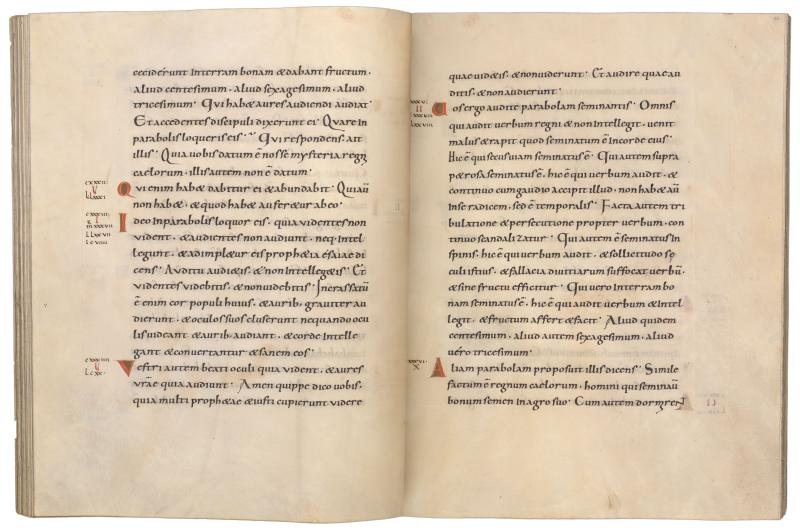 ceciderunt interram bonam &dabant fructum·
aliud centesimum· aliud sexagesimum· aliud
tricesimum· Qui hab& aures audiendi audiat·
Et accedentes discipuli dixerunt ei· Quare in
parabolis loqueris eis· Qui respondens· ait
illis· Quia uobis datum ē nosse mysteria regni
caelorum· illis autem non ē datum·
Qui enim hab& dabitur ei &abundabit· Qui aū
non hab&· &quod hab& aufer&ur ab eo·
Ideo inparabolis loquor eis· quia uidentes non
uident· &audientes non audiunt· neq; intel
legunt· &adimpl&ur eis proph&ia esaiae di
cens· Auditu audi&is· &non intelleg&is· Et
uidentes uidebitis· &non uidebitis· Incrassatū
ē enim cor populi huius· &aurib; grauiter au
dierunt· &oculos suos cluserunt nequando ocu
lis uideant &aurib; audiant· &corde intelle
gant &conuertantur &sanem eos·
Vestri autem beati oculi quia uident· &aures
urāe quia audiunt· Amen quippe dico uobis·
quia multi proph&ae &iusti cupierunt uidere
quae uid&is· &non uiderunt· Et audire quae au
ditis· &non audierunt·
Uos ergo audite parabolam seminantis· Omnis
qui audit uerbum regni &non intellegit· uenit
malus &rapit quod seminatum ē in corde eius·
Hic ē qui secus uiam seminatus ē· Qui autem supra
p&rosa seminatus ē· hic ē qui uerbum audit· &
continuo cum gaudio accipit illud· non hab& aū
in se radicem· sed ē temporalis· Facta autem tri
bulatione &persecutione propter uerbum· con
tinuo scandalizatur· Qui autem ē seminatus in
spinis· hic ē qui uerbum audit· &sollicitudo se
culi istius· &fallacia diuitiarum suffocat uerbū·
&sine fructu efficitur· Qui uero in terram bo
nam seminatus ē· hic ē qui audit uerbum &intel
legit· &fructum affert &facit· Aliud quidem
centesimum· aliud autem sexagesimum· aliud
uero tricesimum·
Aliam parabolam proposuit illis dicens· Simile
factum ē regnum caelorum· homini qui seminauit
bonum semen in agro suo· Cum autem dormirent